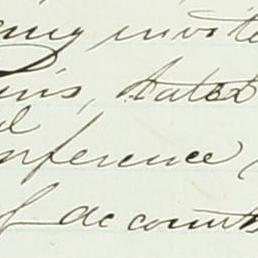 ing invite
ris, stated
nference
of accounts